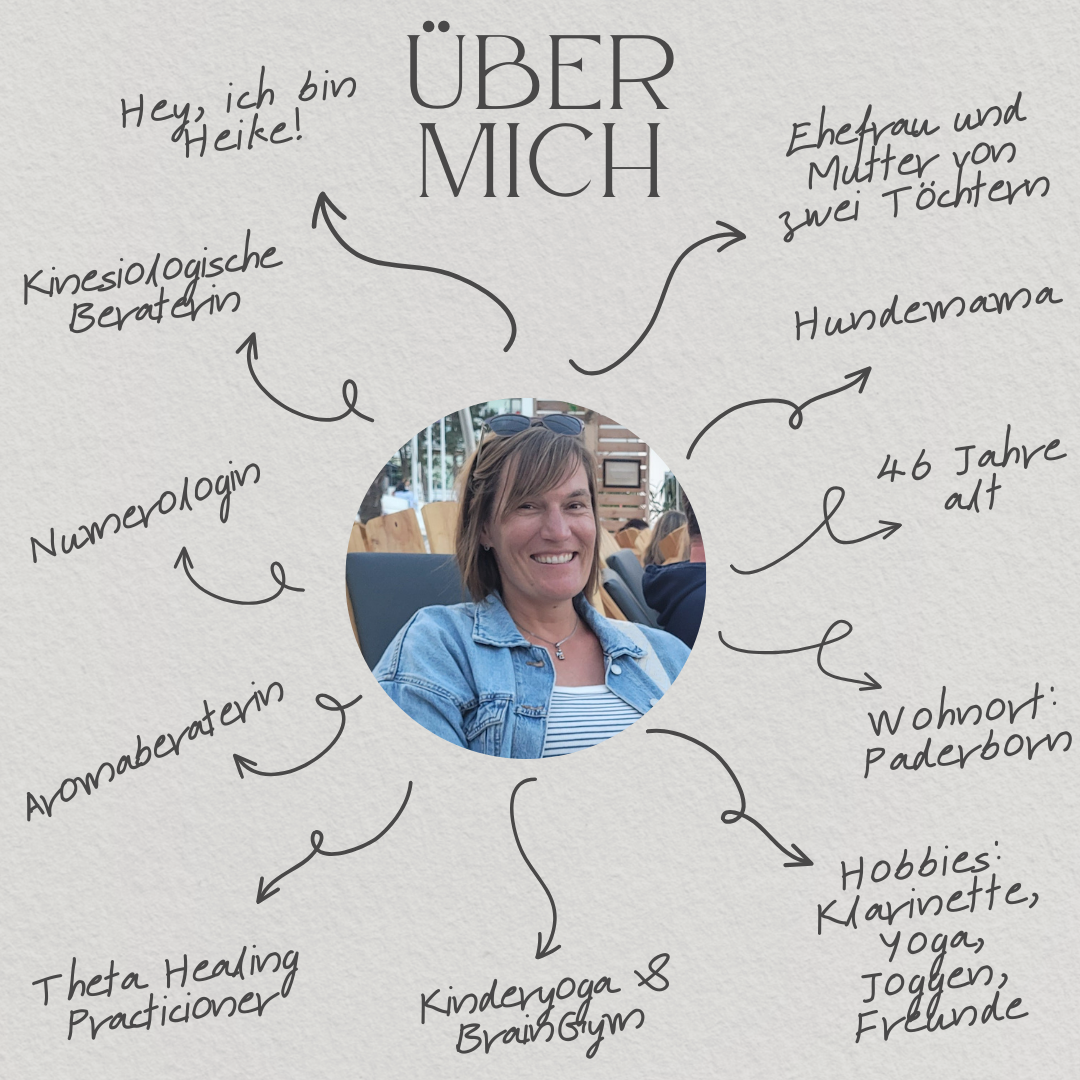 ÜBER
MICH
Hey, ich bin
Heike!
Ehefrau und
Mutter von
zwei Töchtern
Kinesiologische
Beraterin
Hundemama
Numerologin
46 Jahre
alt
Aromaberaterin
Wohnort:
Paderborn
Theta Healing
Practicioner
Kinderyoga &
BrainGym
Hobbies:
Klarinette,
Yoga,
Joggen,
Freunde